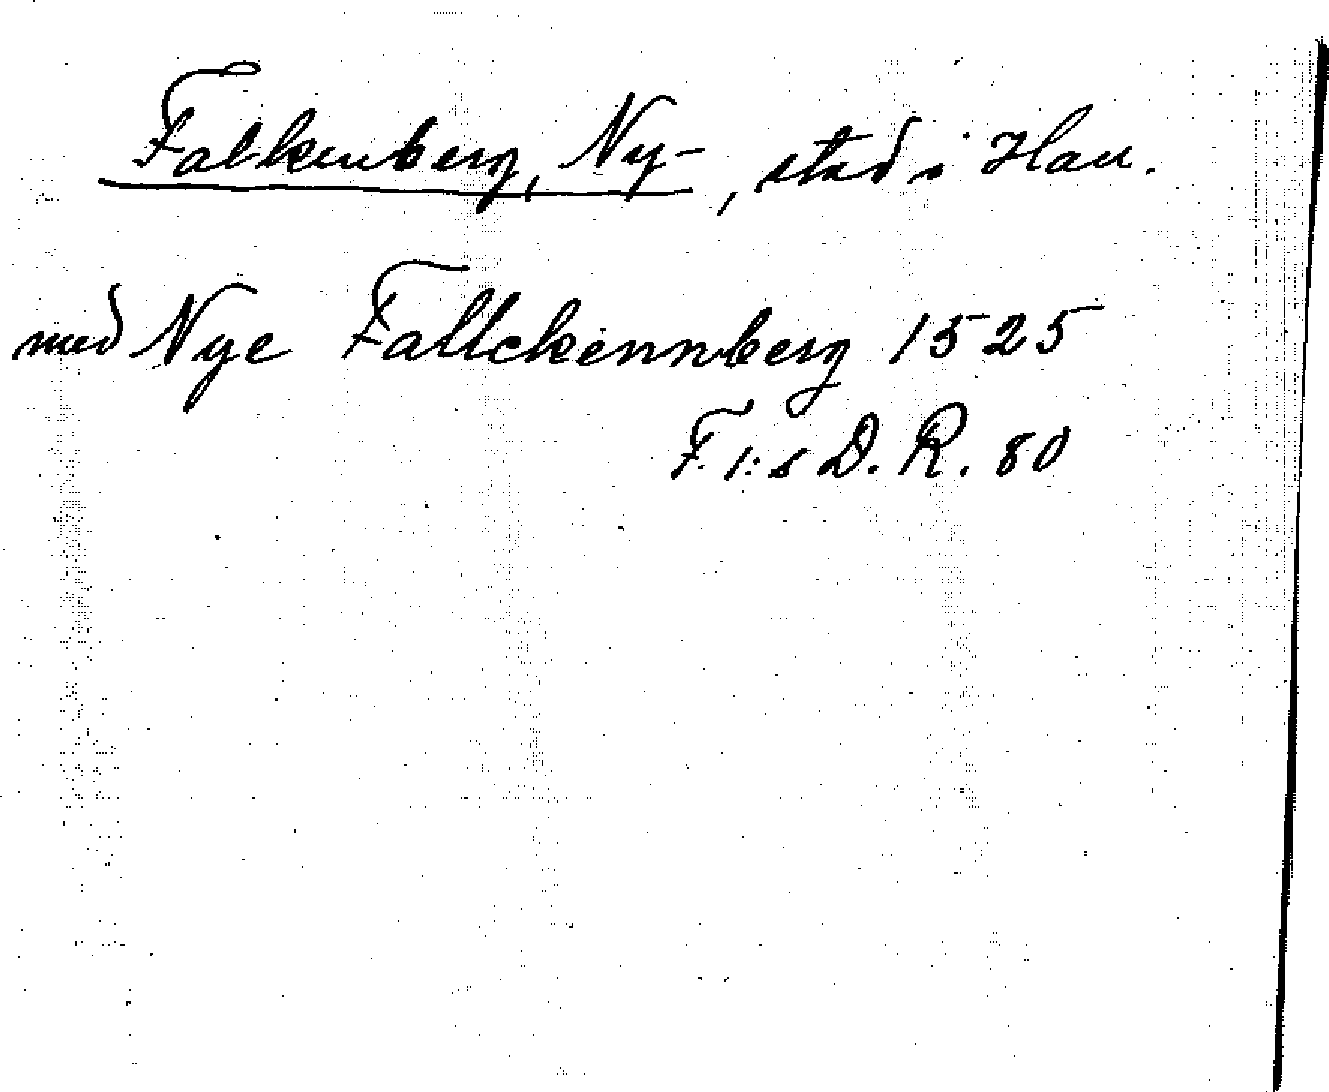 Falkenberg, Ny-, stad i Hall.
med Nye Fallckennberg 1525
F. I:s D. R. 80